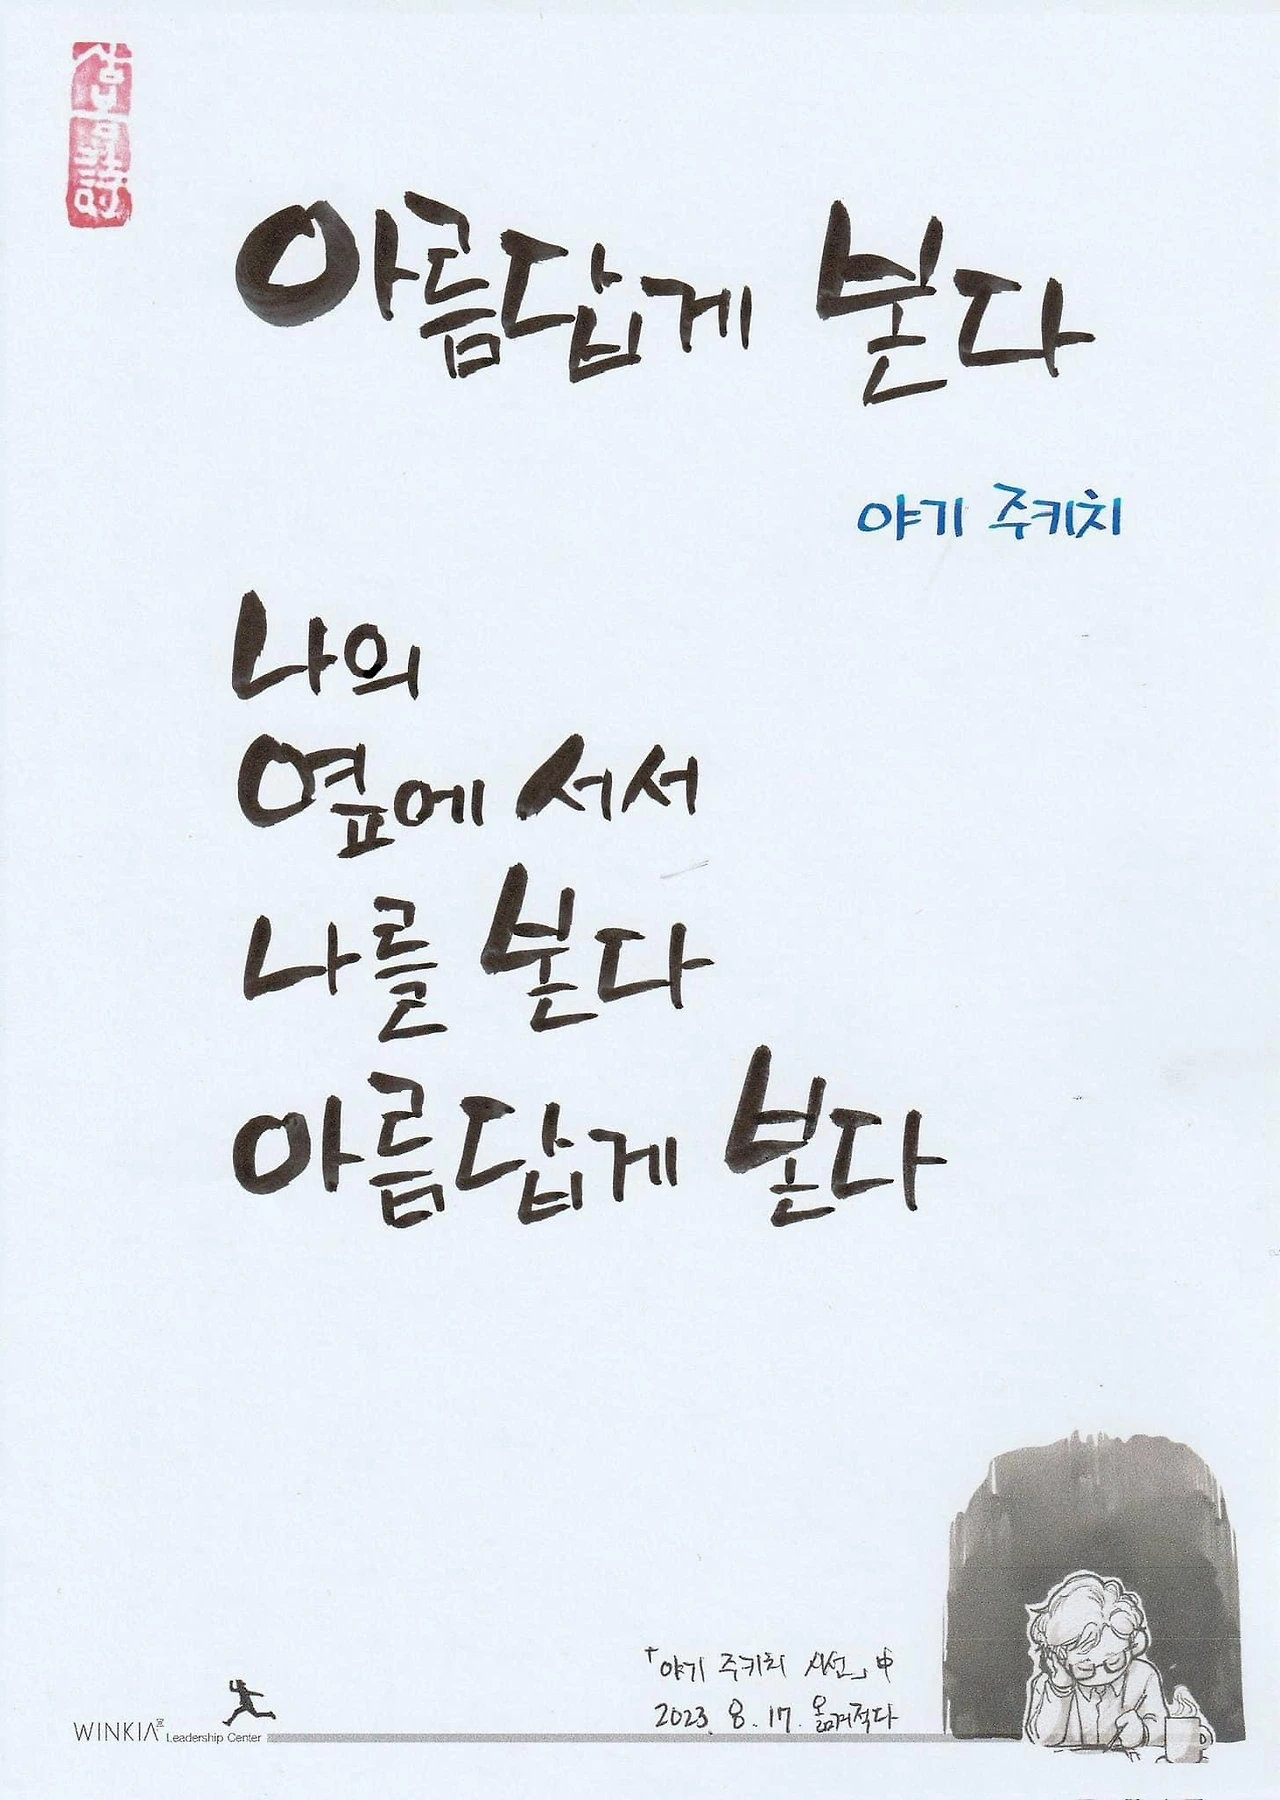 아름답게 본다
야기 주키치
나의
옆에 서서
나를 본다
아름답게 본다
「야기 주키치 시선」中
2023. 8. 17. 옮겨적다
WINKIA Leadership Center